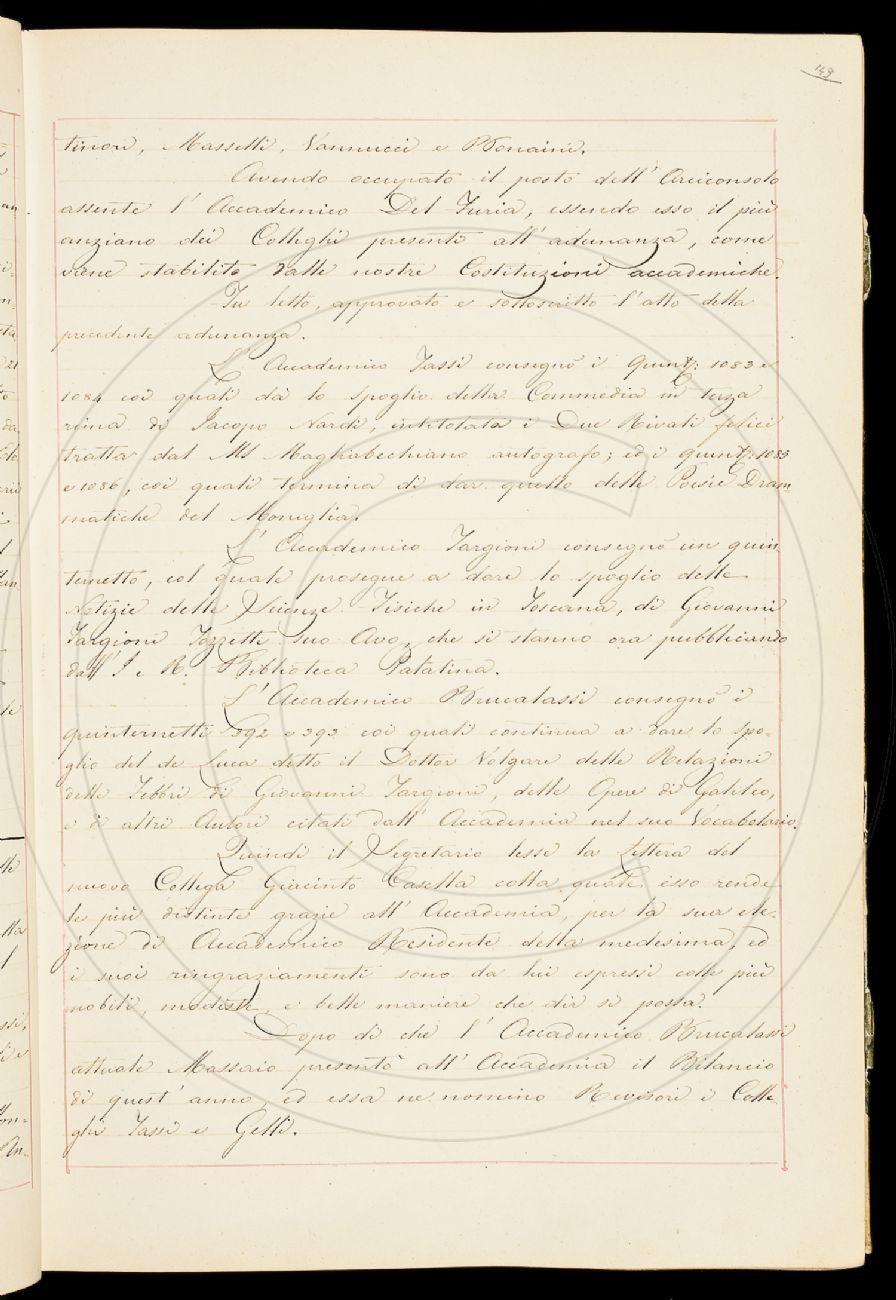 149
tinori, Masselli, Vannucci e Bonaini.
Avendo occupato il posto dell' Arciconsolo
assente l' Accademico Del Furia, essendo esso il più
anziano dei Colleghi presenti all' adunanza, come
viene stabilito dalle nostre Costituzioni accademiche.
Fu letto, approvato e sottoscritto l' atto della
precedente adunanza.
L' Accademico Tassi consegnò i Quint: 1083 e
1084 coi quali dà lo spoglio della Commedia in terza
rima di Jacopo Nardi, intitolata i Due Rivali felici
tratta dal Ms Magliabechiano autografo; ed i quint: 1085
e 1086, coi quali termina di dar quello delle Poesie Dram-
matiche del Moniglia.
L' Accademico Targioni consegnò un quin
ternetto, col quale prosegue a dare lo spoglio delle
Notizie delle Scienze Fisiche in Toscana, di Giovanni
Targioni Tozzetti suo Avo, che si stanno ora pubblicando
dall' I e R. Biblioteca Palatina.
L' Accademico Brucalassi consegnò i
quinternetti 392 e 393 coi quali continua a dare lo spo-
glio del de Luca detto il Dottor Volgare delle Relazioni
delle Febbri di Giovanni Targioni, delle Opere di Galileo,
e di altri Autori citati dall' Accademia nel suo Vocabolario.
Quindi il Segretario lesse la Lettera del
nuovo Collega Giacinto Casella colla quale esso rende
le più distinte grazie all' Accademia, per la sua ele-
zione di Accademico Residente della medesima, ed
i suoi ringraziamenti sono da lui espressi colle più
nobili, modeste, e belle maniere che dir si possa.
Dopo di che l' Accademico Brucalassi
attuale Massaio presentò all' Accademia il Bilancio
di quest' anno, ed essa ne nominò Revisori i Colle
ghi Tassi e Gelli.